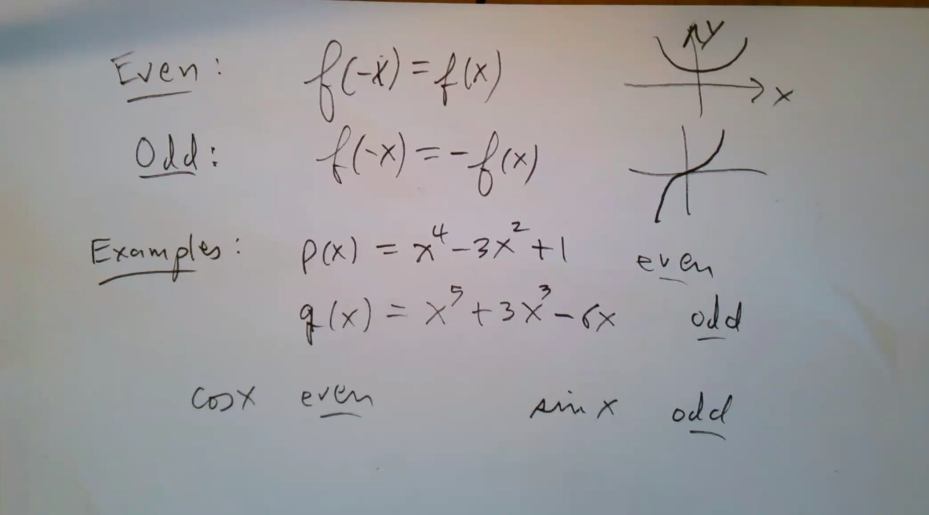 Even: f(-x) = f(x) y
x
Odd: f(-x) = -f(x)
Examples: p(x) = x⁴ - 3x² + 1 even
q(x) = x⁵ + 3x³ - 6x odd
cos x even sin x odd